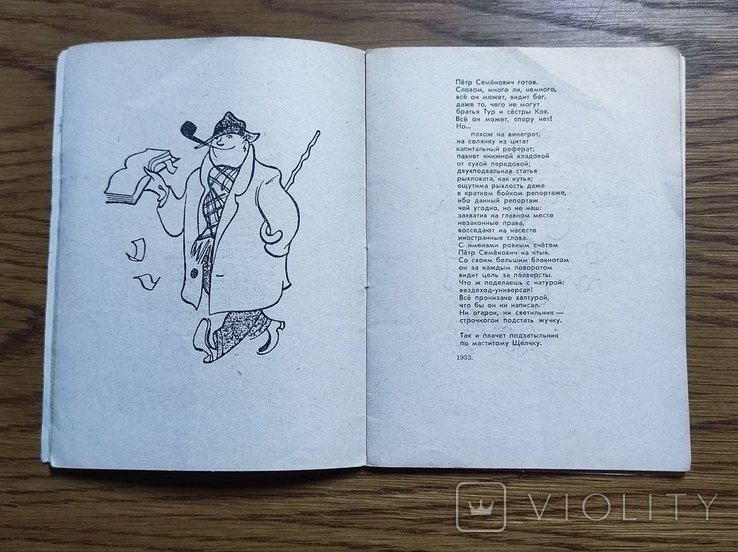 Пётр Семёнович готов.
Словом, много ли, немного,
всё он может, видит бог,
даже то, чего не могут
братья Тур и сёстры Кох.
Всё он может, спору нет!
Но...
похож на винегрет,
на солянку из цитат
капитальный реферат;
пахнет книжной кладовой
от сухой передовой;
двухподвальная статья
рыхловата, как кутья;
ощутима рыхлость даже
в кратком бойком репортаже,
ибо данный репортаж
чей угодно, но не наш:
захватив на главном месте
незаконные права,
восседают на насесте
иностранные слова.
С именами ровным счётом
Пётр Семёнович на «ты».
Со своим большим блокнотом
он за каждым поворотом
видит цель за полверсты.
Что ж поделаешь с натурой:
вездеход-универсал!
Всё пронизано халтурой,
что бы он ни написал.
Ни огарок, ни светильник —
строчкогон подстать жучку.
Так и плачет подзатыльник
по маститому Щелчку.
1953.
VIOLITY